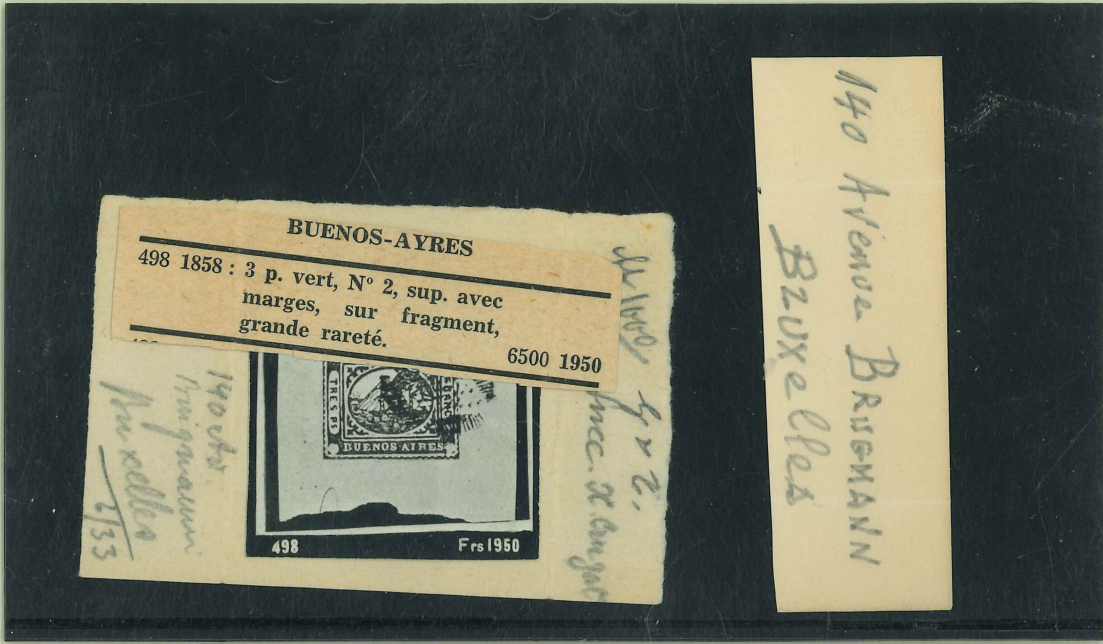 BUENOS-AYRES
498 1858 : 3 p. vert, Nº 2, sup. avec
marges, sur fragment,
grande rareté.
6500 1950
TRES Ps
BUENOS-AIRES
498 Frs 1950
140 Av.
Bruxelles
2/33
140 Avenue BRUGMANN
BRUXelles